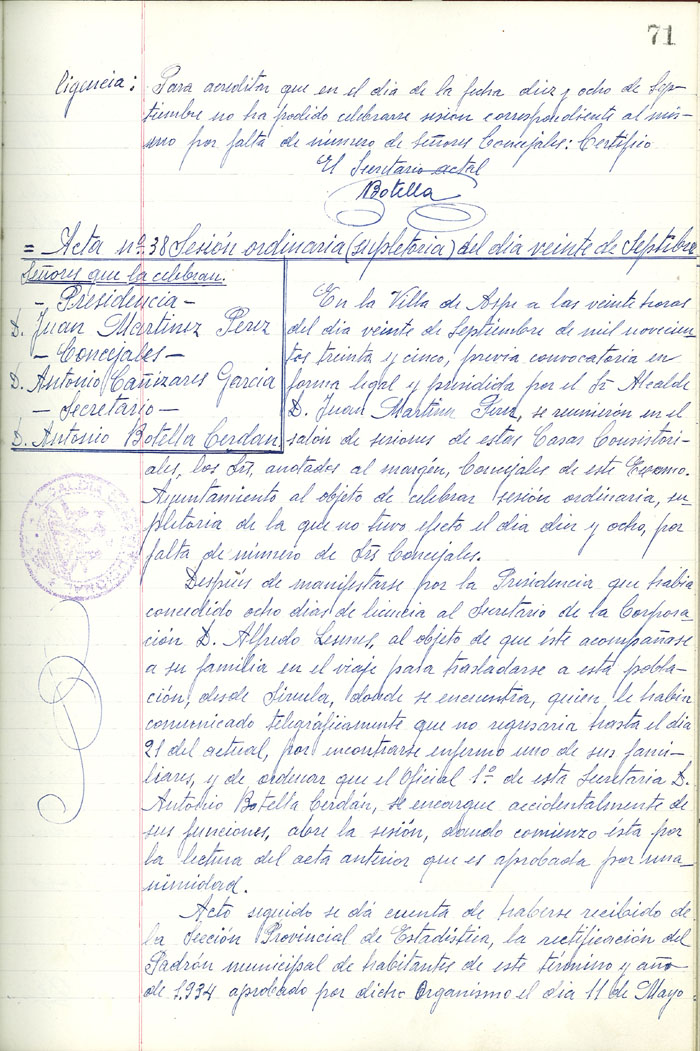 71
ligencia: Para acreditar que en el dia de la fecha diez y ocho de Sep-
tiembre no ha podido celebrarse sesión correspondiente al mis-
mo por falta de número de señores Concejales: Certifico
El Secretario actal
Botella
= Acta nº 38 Sesión ordinaria (supletoria) del dia veinte de Septibre
Señores que la celebran.
- Presidencia -
D. Juan Martinez Perez
- Concejales -
D. Antonio Cañizares Garcia
- Secretario -
D. Antonio Botella Cerdan
En la Villa de Aspe a las veinte horas
del dia veinte de Septiembre de mil novecien-
tos treinta y cinco, previa convocatoria en
forma legal y presidida por el Sr Alcalde
D. Juan Martinez Perez, se reunieron en el
salón de sesiones de estas Casas Consistori-
ales, los Srs, anotados al margén, Concejales de este Excmo.
Ayuntamiento al objeto de celebrar sesión ordinaria, su-
pletoria de la que no tuvo efecto el dia diez y ocho, por
falta de número de Srs Concejales.
Despúes de manifestarse por la Presidencia que habia
concedido ocho dias de licencia al Secretario de la Corpora-
ción D. Alfredo Lesmes, al objeto de que éste acompañase
a su familia en el viaje para trasladarse a esta pobla-
ción, desde Siruela, donde se encuentra, quien le habia
comunicado telegráficamente que no regresaria hasta el dia
21 del actual, por encontrarse enfermo uno de sus fami-
liares, y de ordenar que el Oficial 1º de esta Secretaria D.
Antonio Botella Cerdán, se encargue accidentalmente de
sus funciones, abre la sesión, dando comienzo ésta por
la lectura del acta anterior que es aprobada por una-
nimidad.
Acto seguido se dá cuenta de haberse recibido de
la Sección Provincial de Estadistica, la rectificación del
Padrón municipal de habitantes de este término y año
de 1.934 aprobado por dicho Organismo el dia 11 de Mayo